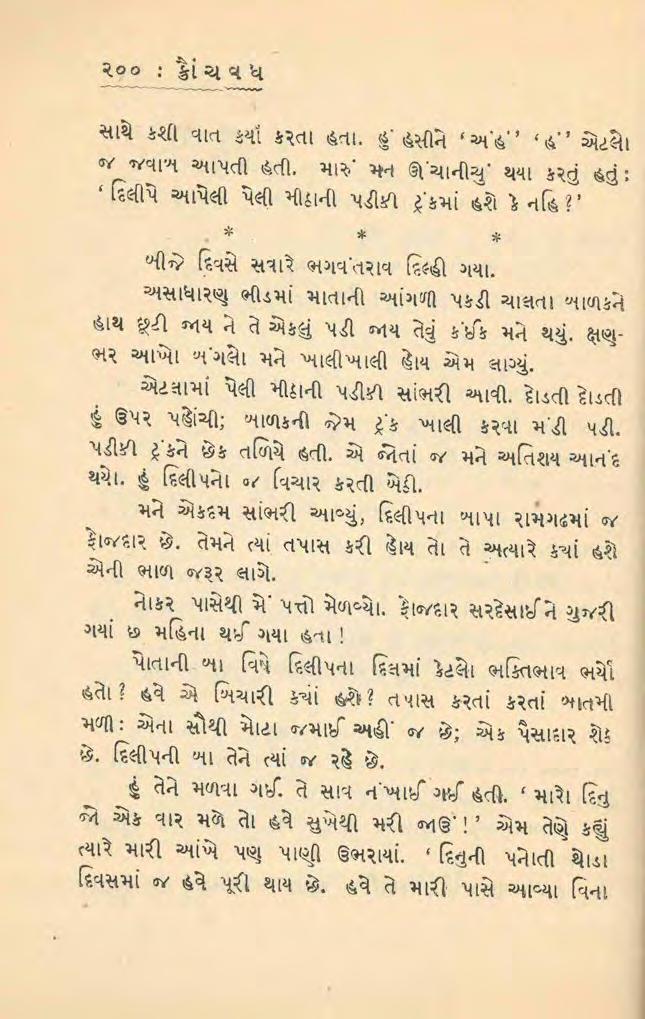 ૨૦૦ : ક્રૌંચવધ
સાથે કશી વાત કર્યા કરતા હતા. હું હસીને ‘અંહં’ ‘હં’ એટલો
જ જવાબ આપતી હતી. મારું મન ઊંચાનીચું થયા કરતું હતું :
‘દિલીપે આપેલી પેલી મીઠાની પડીકી ટ્રંકમાં હશે કે નહિ?’
* * *
બીજે દિવસે સવારે ભગવંતરાવ દિલ્હી ગયા.
અસાધારણ ભીડમાં માતાની આંગળી પકડી ચાલતા બાળકને
હાથ છૂટી જાય ને તે એકલું પડી જાય તેવું કંઈક મને થયું. ક્ષણ-
ભર આખો બંગલો મને ખાલીખાલી હોય એમ લાગ્યું.
એટલામાં પેલી મીઠાની પડીકી સાંભરી આવી. દોડતી દોડતી
હું ઉપર પહોંચી; બાળકની જેમ ટ્રંક ખાલી કરવા મંડી પડી.
પડીકી ટ્રંકને છેક તળિયે હતી. એ જોતાં જ મને અતિશય આનંદ
થયો. હું દિલીપનો જ વિચાર કરતી બેઠી.
મને એકદમ સાંભરી આવ્યું, દિલીપના બાપા રામગઢમાં જ
ફોજદાર છે. તેમને ત્યાં તપાસ કરી હોય તો તે અત્યારે ક્યાં હશે
એની ભાળ જરૂર લાગે.
નોકર પાસેથી મેં પત્તો મેળવ્યો. ફોજદાર સરદેસાઈને ગુજરી
ગયાં છ મહિના થઈ ગયા હતા !
પોતાની બા વિષે દિલીપના દિલમાં કેટલો ભક્તિભાવ ભર્યો
હતો ? હવે એ બિચારી ક્યાં હશે ? તપાસ કરતાં કરતાં બાતમી
મળી : એના સૌથી મોટા જમાઈ અહીં જ છે; એક પૈસાદાર શેઠ
છે. દિલીપની બા તેને ત્યાં જ રહે છે.
હું તેને મળવા ગઈ. તે સાવ નંખાઈ ગઈ હતી. ‘મારો દિનુ
જો એક વાર મળે તો હવે સુખેથી મરી જાઉં !’ એમ તેણે કહ્યું
ત્યારે મારી આંખે પણ પાણી ઉભરાયાં. ‘દિનુની પનોતી થોડા
દિવસમાં જ હવે પૂરી થાય છે. હવે તે મારી પાસે આવ્યા વિના